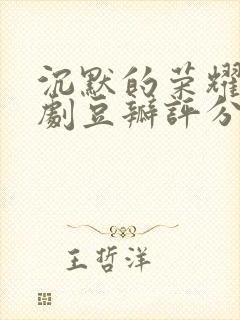 沉默的荣耀
劇豆瓣評分
王哲洋